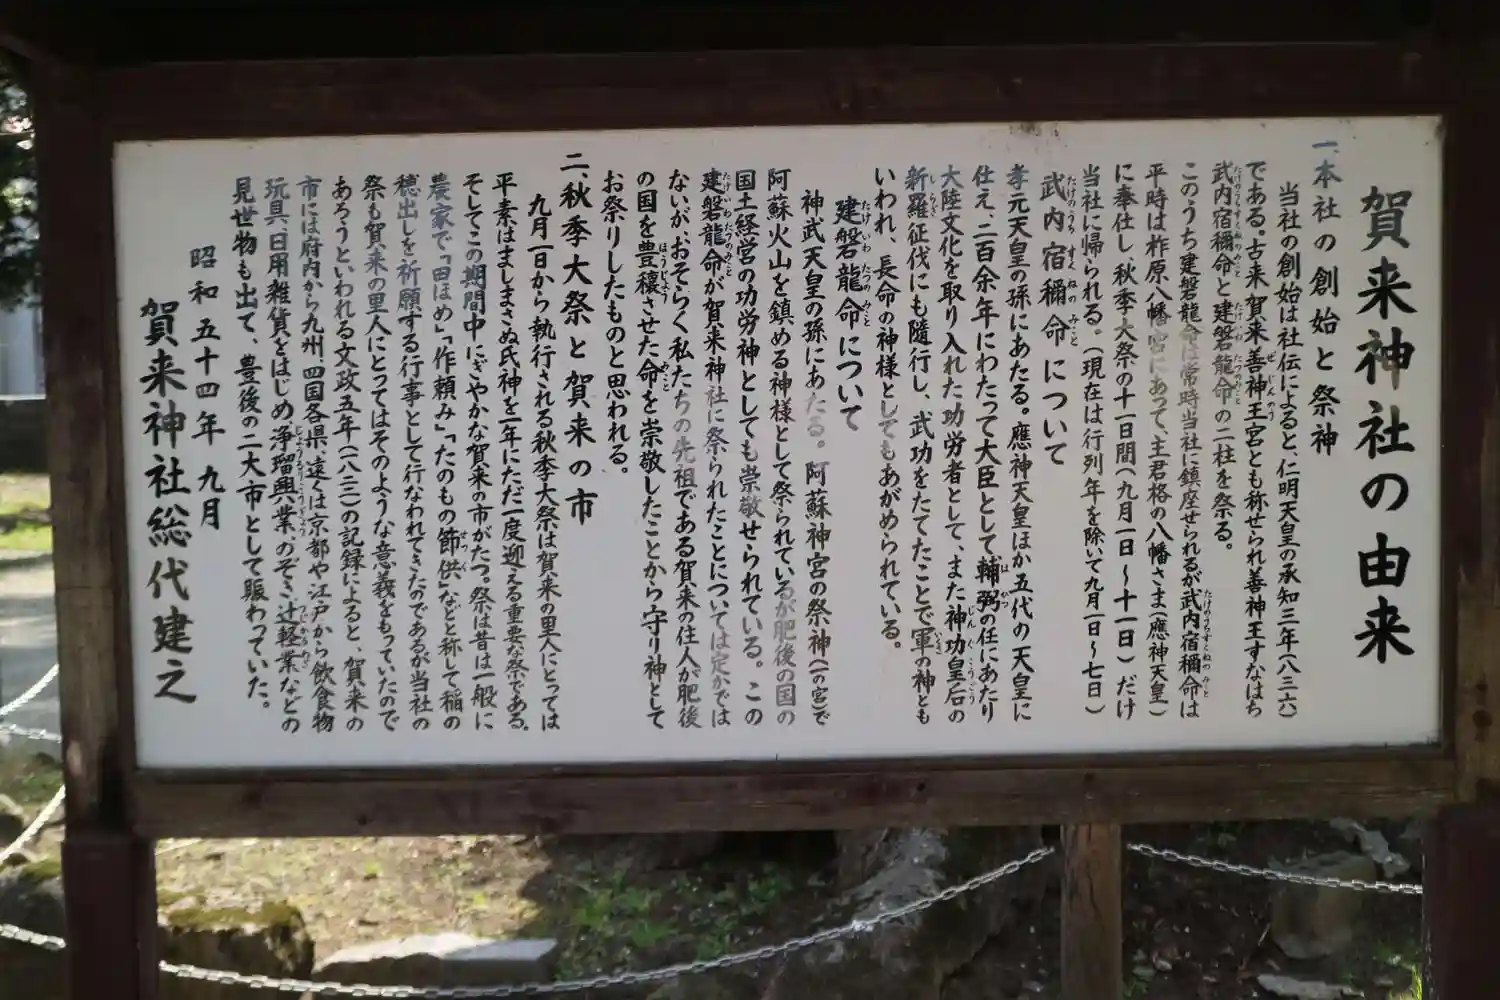 賀来神社の由来
一、本社の創始と祭神
当社の創始は社伝によると、仁明天皇の承知三年(八三六)
である。古来、賀来善神王宮とも称せられ善神王すなはち
武内宿禰命と建磐龍命の二柱を祭る。
このうち建磐龍命は常時当社に鎮座せられるが武内宿禰命は
平時は柞原八幡宮にあって、主君格の八幡さま(應神天皇)
に奉仕し、秋季大祭の十一日間(九月一日〜十一日)だけ
当社に帰られる。(現在は行列年を除いて九月一日〜七日)
武内宿禰命について
孝元天皇の孫にあたる。應神天皇ほか五代の天皇に
仕え、二百余年にわたって大臣として輔弼の任にあたり
大陸文化を取り入れた功労者として、また神功皇后の
新羅征伐にも隨行し、武功をたてたことで軍の神とも
いわれ、長命の神様としてもあがめられている。
建磐龍命について
神武天皇の孫にあたる。阿蘇神宮の祭神(一の宮)で
阿蘇火山を鎮める神様として祭られているが肥後の国の
国土経営の功労神としても崇敬せられている。この
建磐龍命が賀来神社に祭られたことについては定かでは
ないが、おそらく私たちの先祖である賀来の住人が肥後
の国を豊穰させた命を崇敬したことから守り神として
お祭りしたものと思われる。
二、秋季大祭と賀来の市
九月一日から執行される秋季大祭は賀来の里人にとっては
平素はましまさぬ氏神を一年にただ一度迎える重要な祭である。
そしてこの期間中にぎやかな賀来の市がたつ。祭は昔は一般に
農家で「田ほめ」「作頼み」「たのもの節供」などと称して稲の
穂出しを祈願する行事として行なわれてきたのであるが当社の
祭も賀来の里人にとってはそのような意義をもっていたので
あろうといわれる文政五年(八三)の記録によると、賀来の
市には府内から九州、四国各県、遠くは京都や江戸から飲食物
玩具、日用雑貨をはじめ浄瑠興業、のぞき、辻軽業などの
見世物も出て、豊後の二大市として賑わっていた。
昭和五十四年九月
賀来神社総代建之